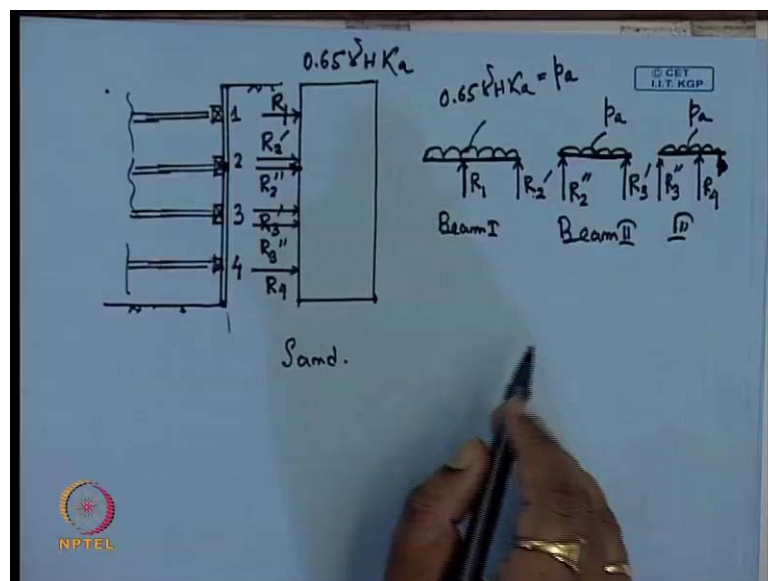 0.65γHKa
0.65γHKa = pa
© CET
I.I.T. KGP
1
R1
R3'
2
R2''
3
R3'
R3''
4
R4
pa
pa
R1
R2'
R2''
R3'
R3''
R4
Beam I
Beam II
III
Sand.
NPTEL